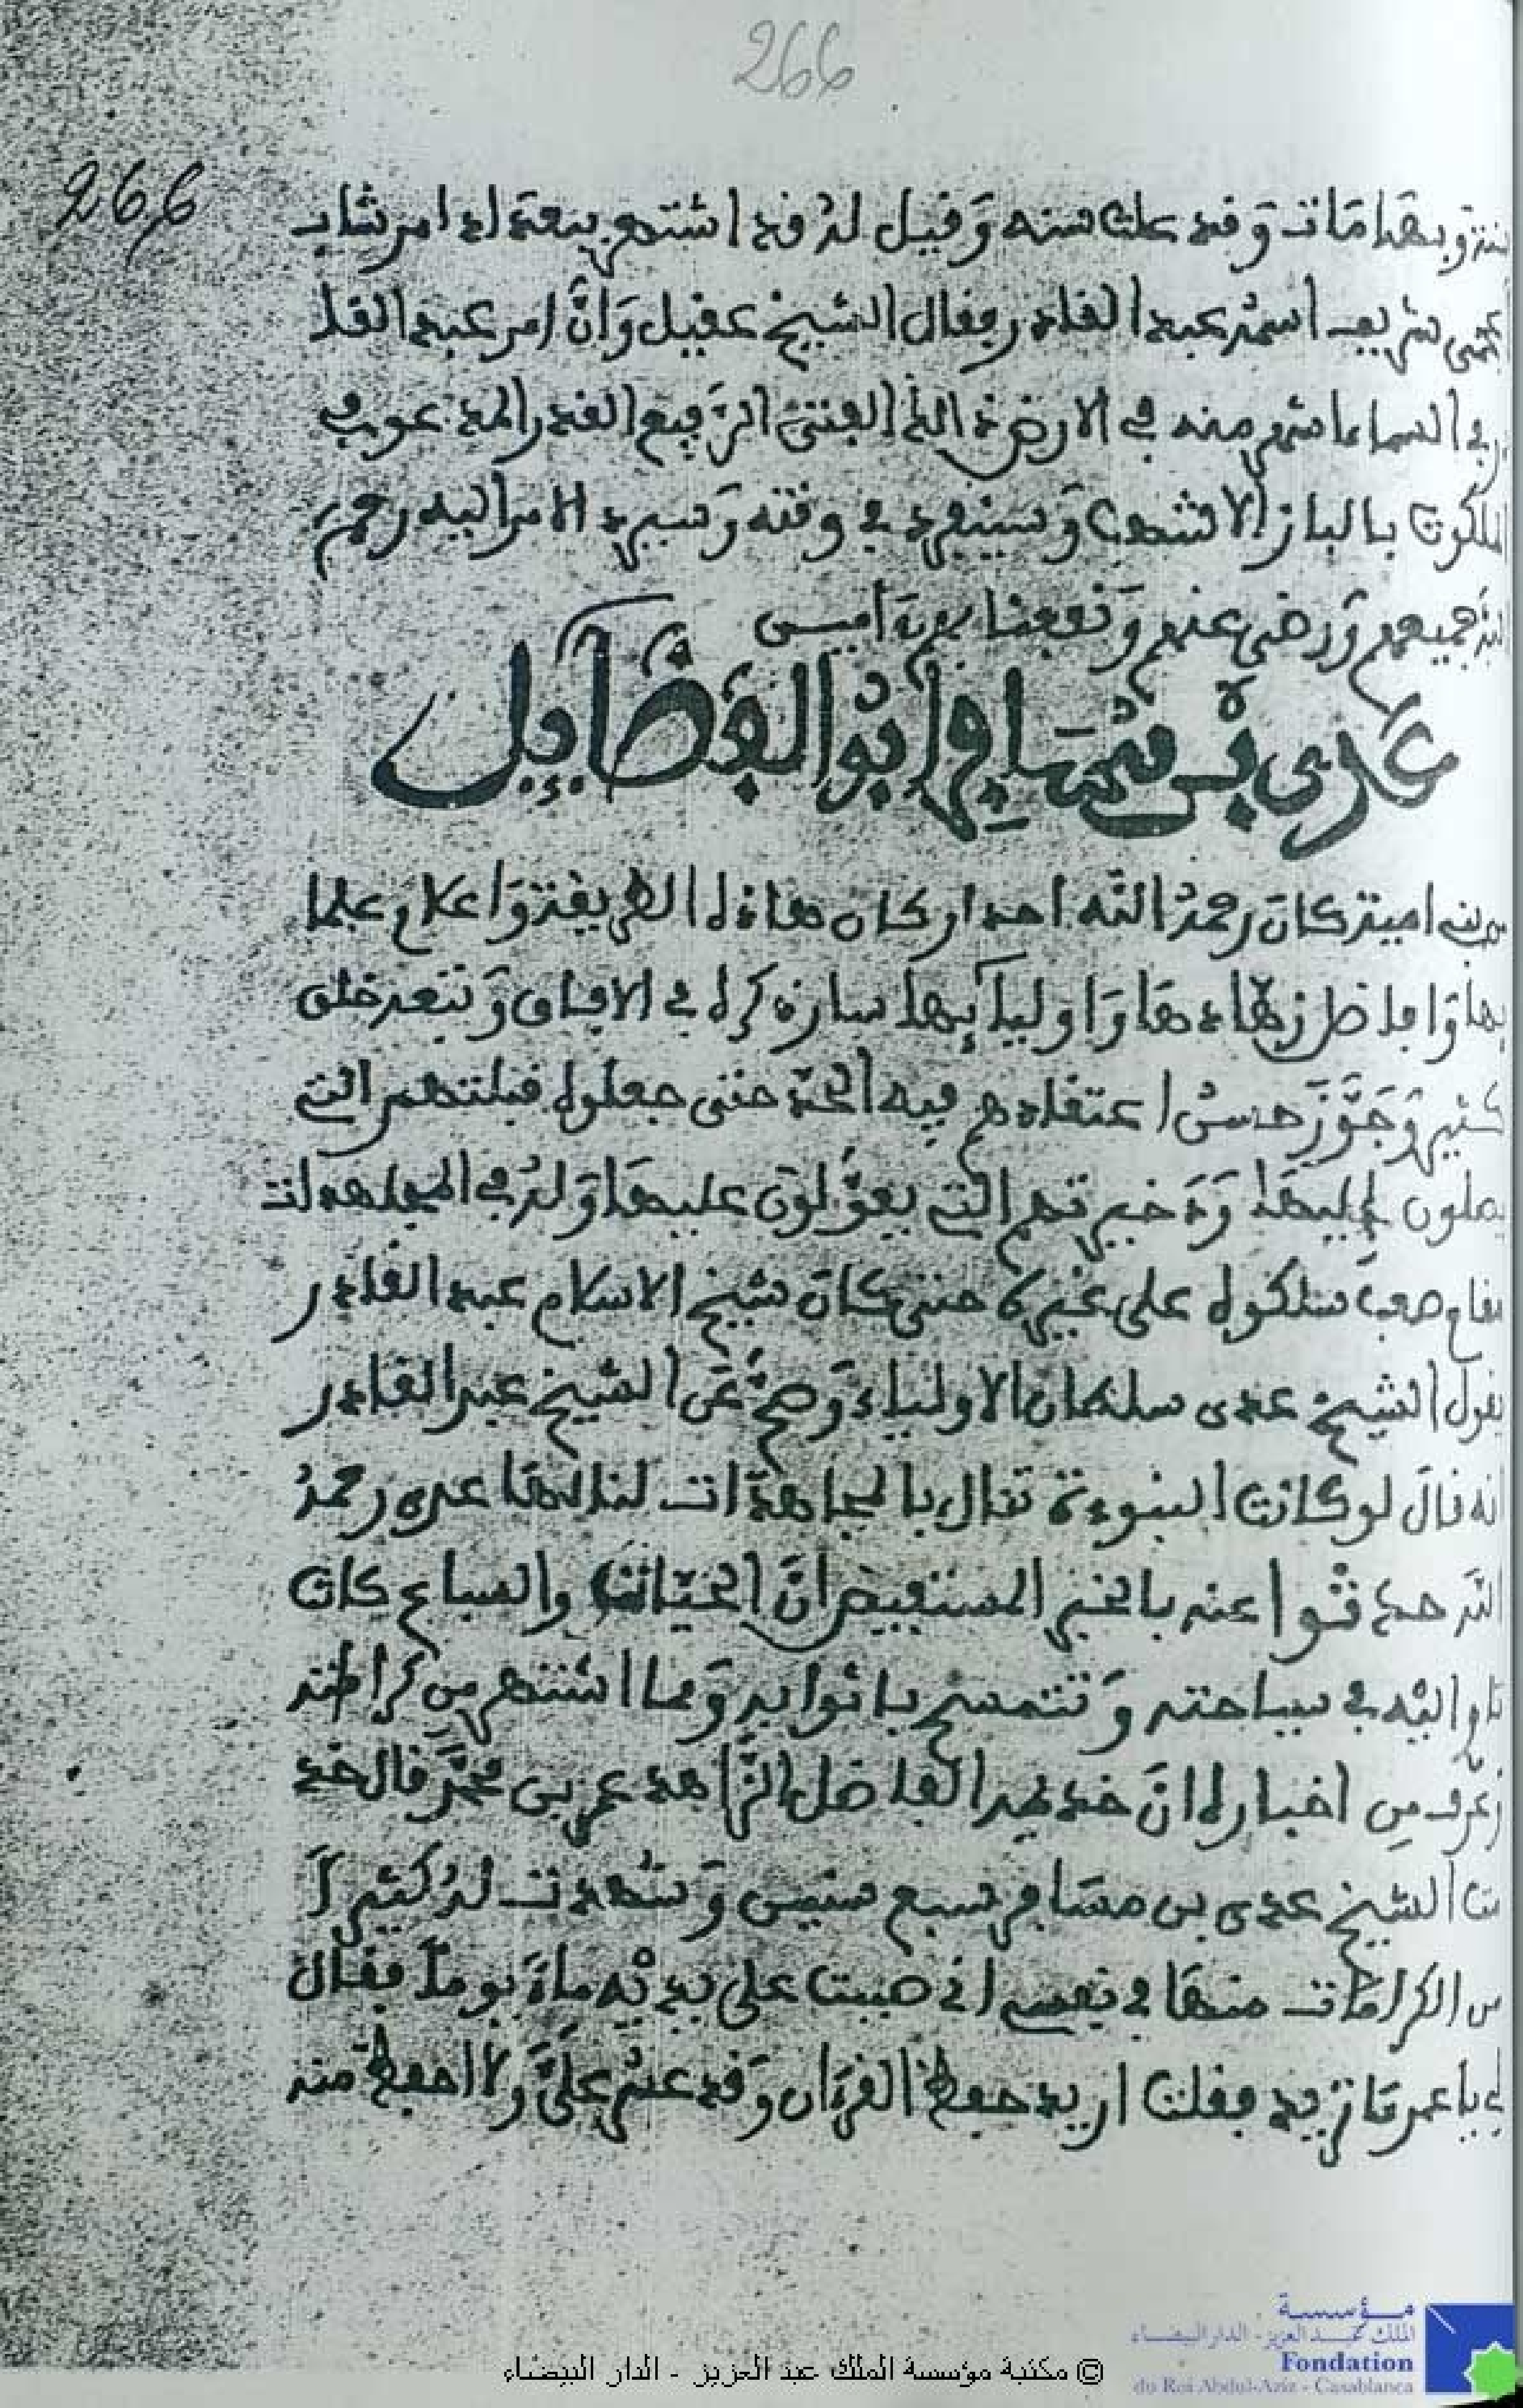 266
266
وبها مات وقد علت سنه وقيل له قد اشتهر ببغداد امر شاب
شريف اسمه عبد القادر فقال الشيخ عقيل وان امر عبد القا
في السماء اشهر منه في الارض ذاك الفتى الرفيع القدر المدعو في
الملكوت بالباز الاشهب وسينفرد في وقته وسيرد الامر اليه رحم
الله جميعهم ورضي عنهم ونفعنا بهم آمين
عدي بن مسافر ابو الفضايل
بني امية كان رحمه الله احد اركان هاذه الطريقة واعلام علما
بها وافاضل زهادها واوليايها سار ذكره في الافاق وتبعه خلق
كثير وجوز حسن اعتقادهم فيه الحد حتى جعلوه قبلتهم التي
يصلون اليها وذخيرتهم التي يعولون عليها وله في المجاهدات
مقام صعب سلكوه على غيره حتى كان شيخ الاسلام عبد القادر
يقول الشيخ عدي سلطان الاولياء وصح عن الشيخ عبد القادر
انه قال لو كانت النبوءة تنال بالمجاهدات لنالها عدي رحمه
الله حدثوا عنه بالخبر المستفيض ان الحيات والسباع كانت
تاو اليه في سياحته وتتمسح باثوابه ومما اشتهر من كراماته
وعرف من اخباره ان خديمه الفاضل الزاهد عمر بن محمد قال خد
مت الشيخ عدي بن مسافر سبع سنين وشهدت له كثيرا
من الكرامات منها في نفسي اني صببت على يديه ماء يوما فقال
لي يا عمر ما تريد فقلت اريد حفظ القرءان وقد عسر علي ولا احفظ منه
مؤسسة
الملك عبد العزيز - الدار البيضاء
Fondation
du Roi Abdul-Aziz - Casablanca
© مكتبة مؤسسة الملك عبد العزيز - الدار البيضاء